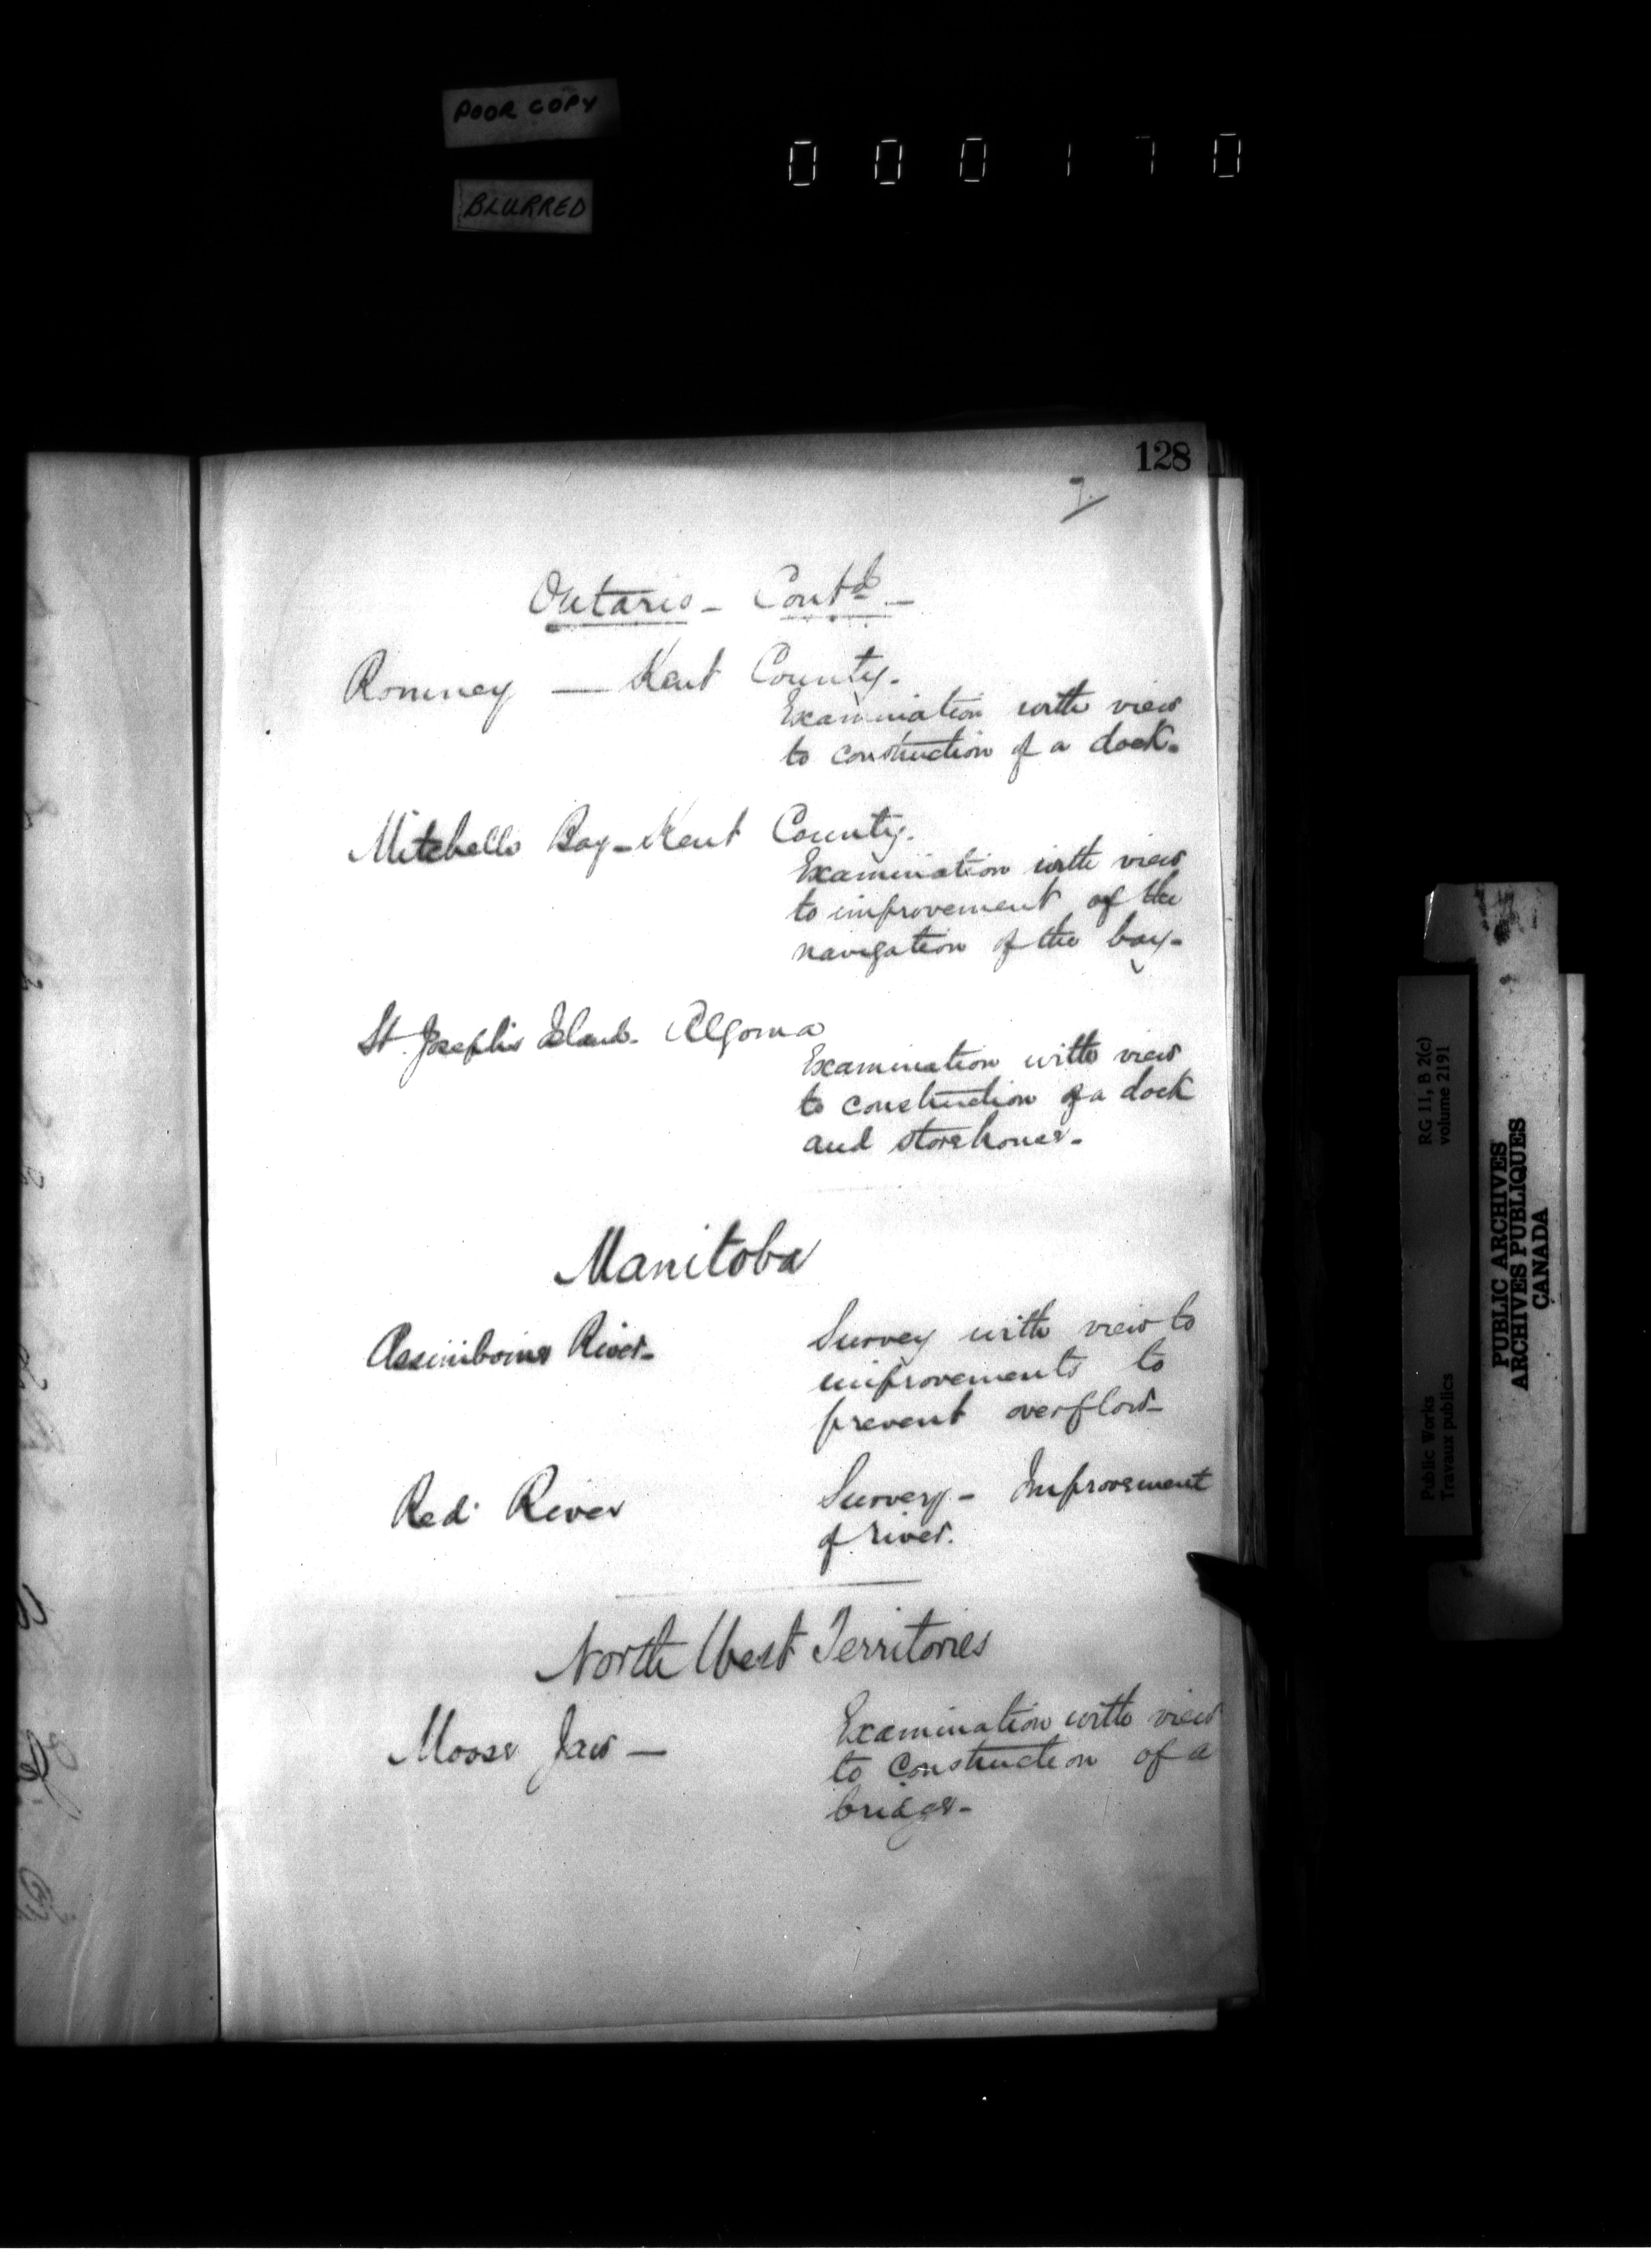 POOR COPY
BLURRED
000170
128
7.
Ontario - Contd -
Romney — Kent County.
Examination with view
to construction of a dock.
Mitchells Bay - Kent County.
Examination with view
to improvement of the
navigation of the bay -
St. Josephs Island. Algoma
Examination with view
to construction of a dock
and storehouse -
Manitoba
Assiniboine River -
Survey with view to
improvements to
prevent overflow -
Red River
Survey - Improvement
of river.
North West Territories
Moose Jaw —
Examination with view
to construction of a
bridge -
RG 11, B 2(c)
volume 2191
Public Works
Travaux publics
PUBLIC ARCHIVES
ARCHIVES PUBLIQUES
CANADA